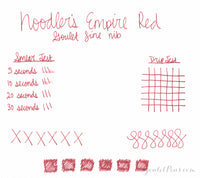 Noodler's Empire Red
Goulet fine nib
Smear Test
Drip Test
5 seconds
10 seconds
20 seconds
30 seconds
XXXXXX
GouletPens.com